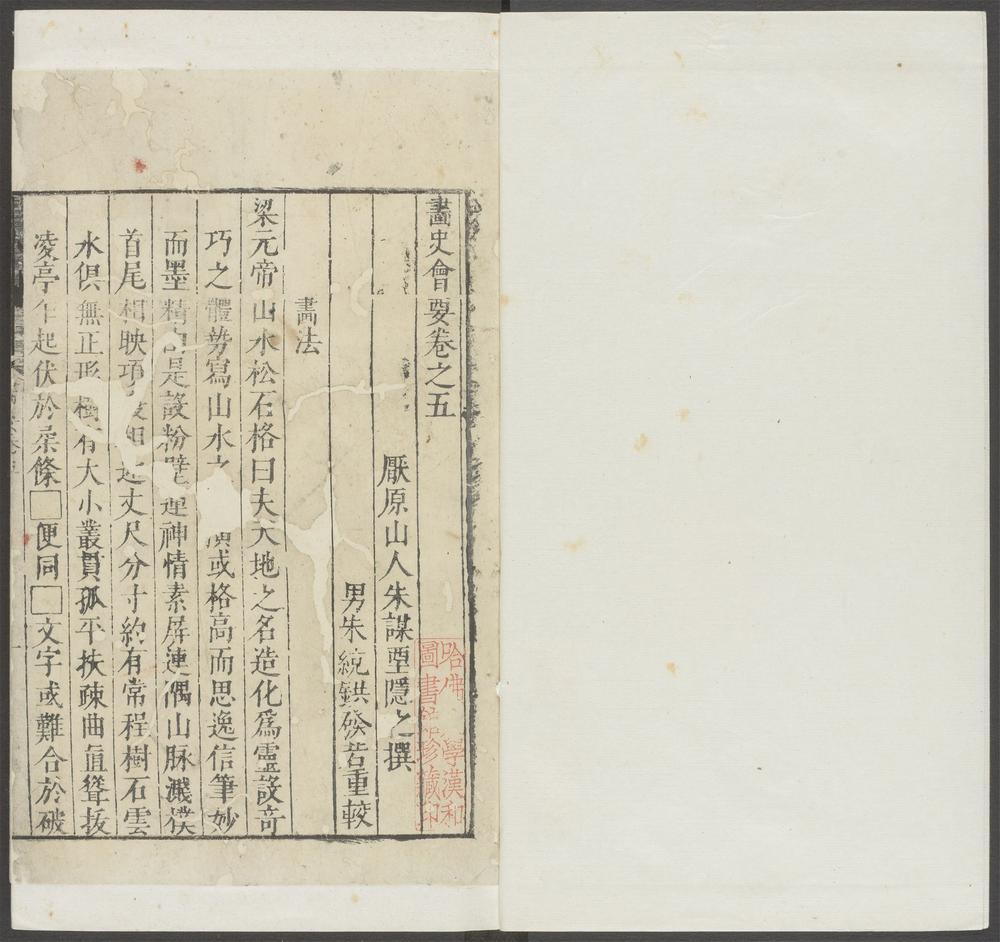 畫史會要卷之五
厭原山人朱謀垔隱之撰
男朱統鉷發若重較
畫法
梁元帝山水松石格曰夫天地之名造化爲靈設奇
巧之體勢寫山水之 或格高而思逸信筆妙
而墨精 是設粉壁運神情素屏連隅山脉濺襆
首尾相映項 相近丈尺分寸約有常程樹石雲
水俱無正形樹有大小叢貫孤平扶疎曲直聳拔
凌亭乍起伏於柔條□便同□文字或難合於破
哈佛 學漢和
圖書館珍藏印